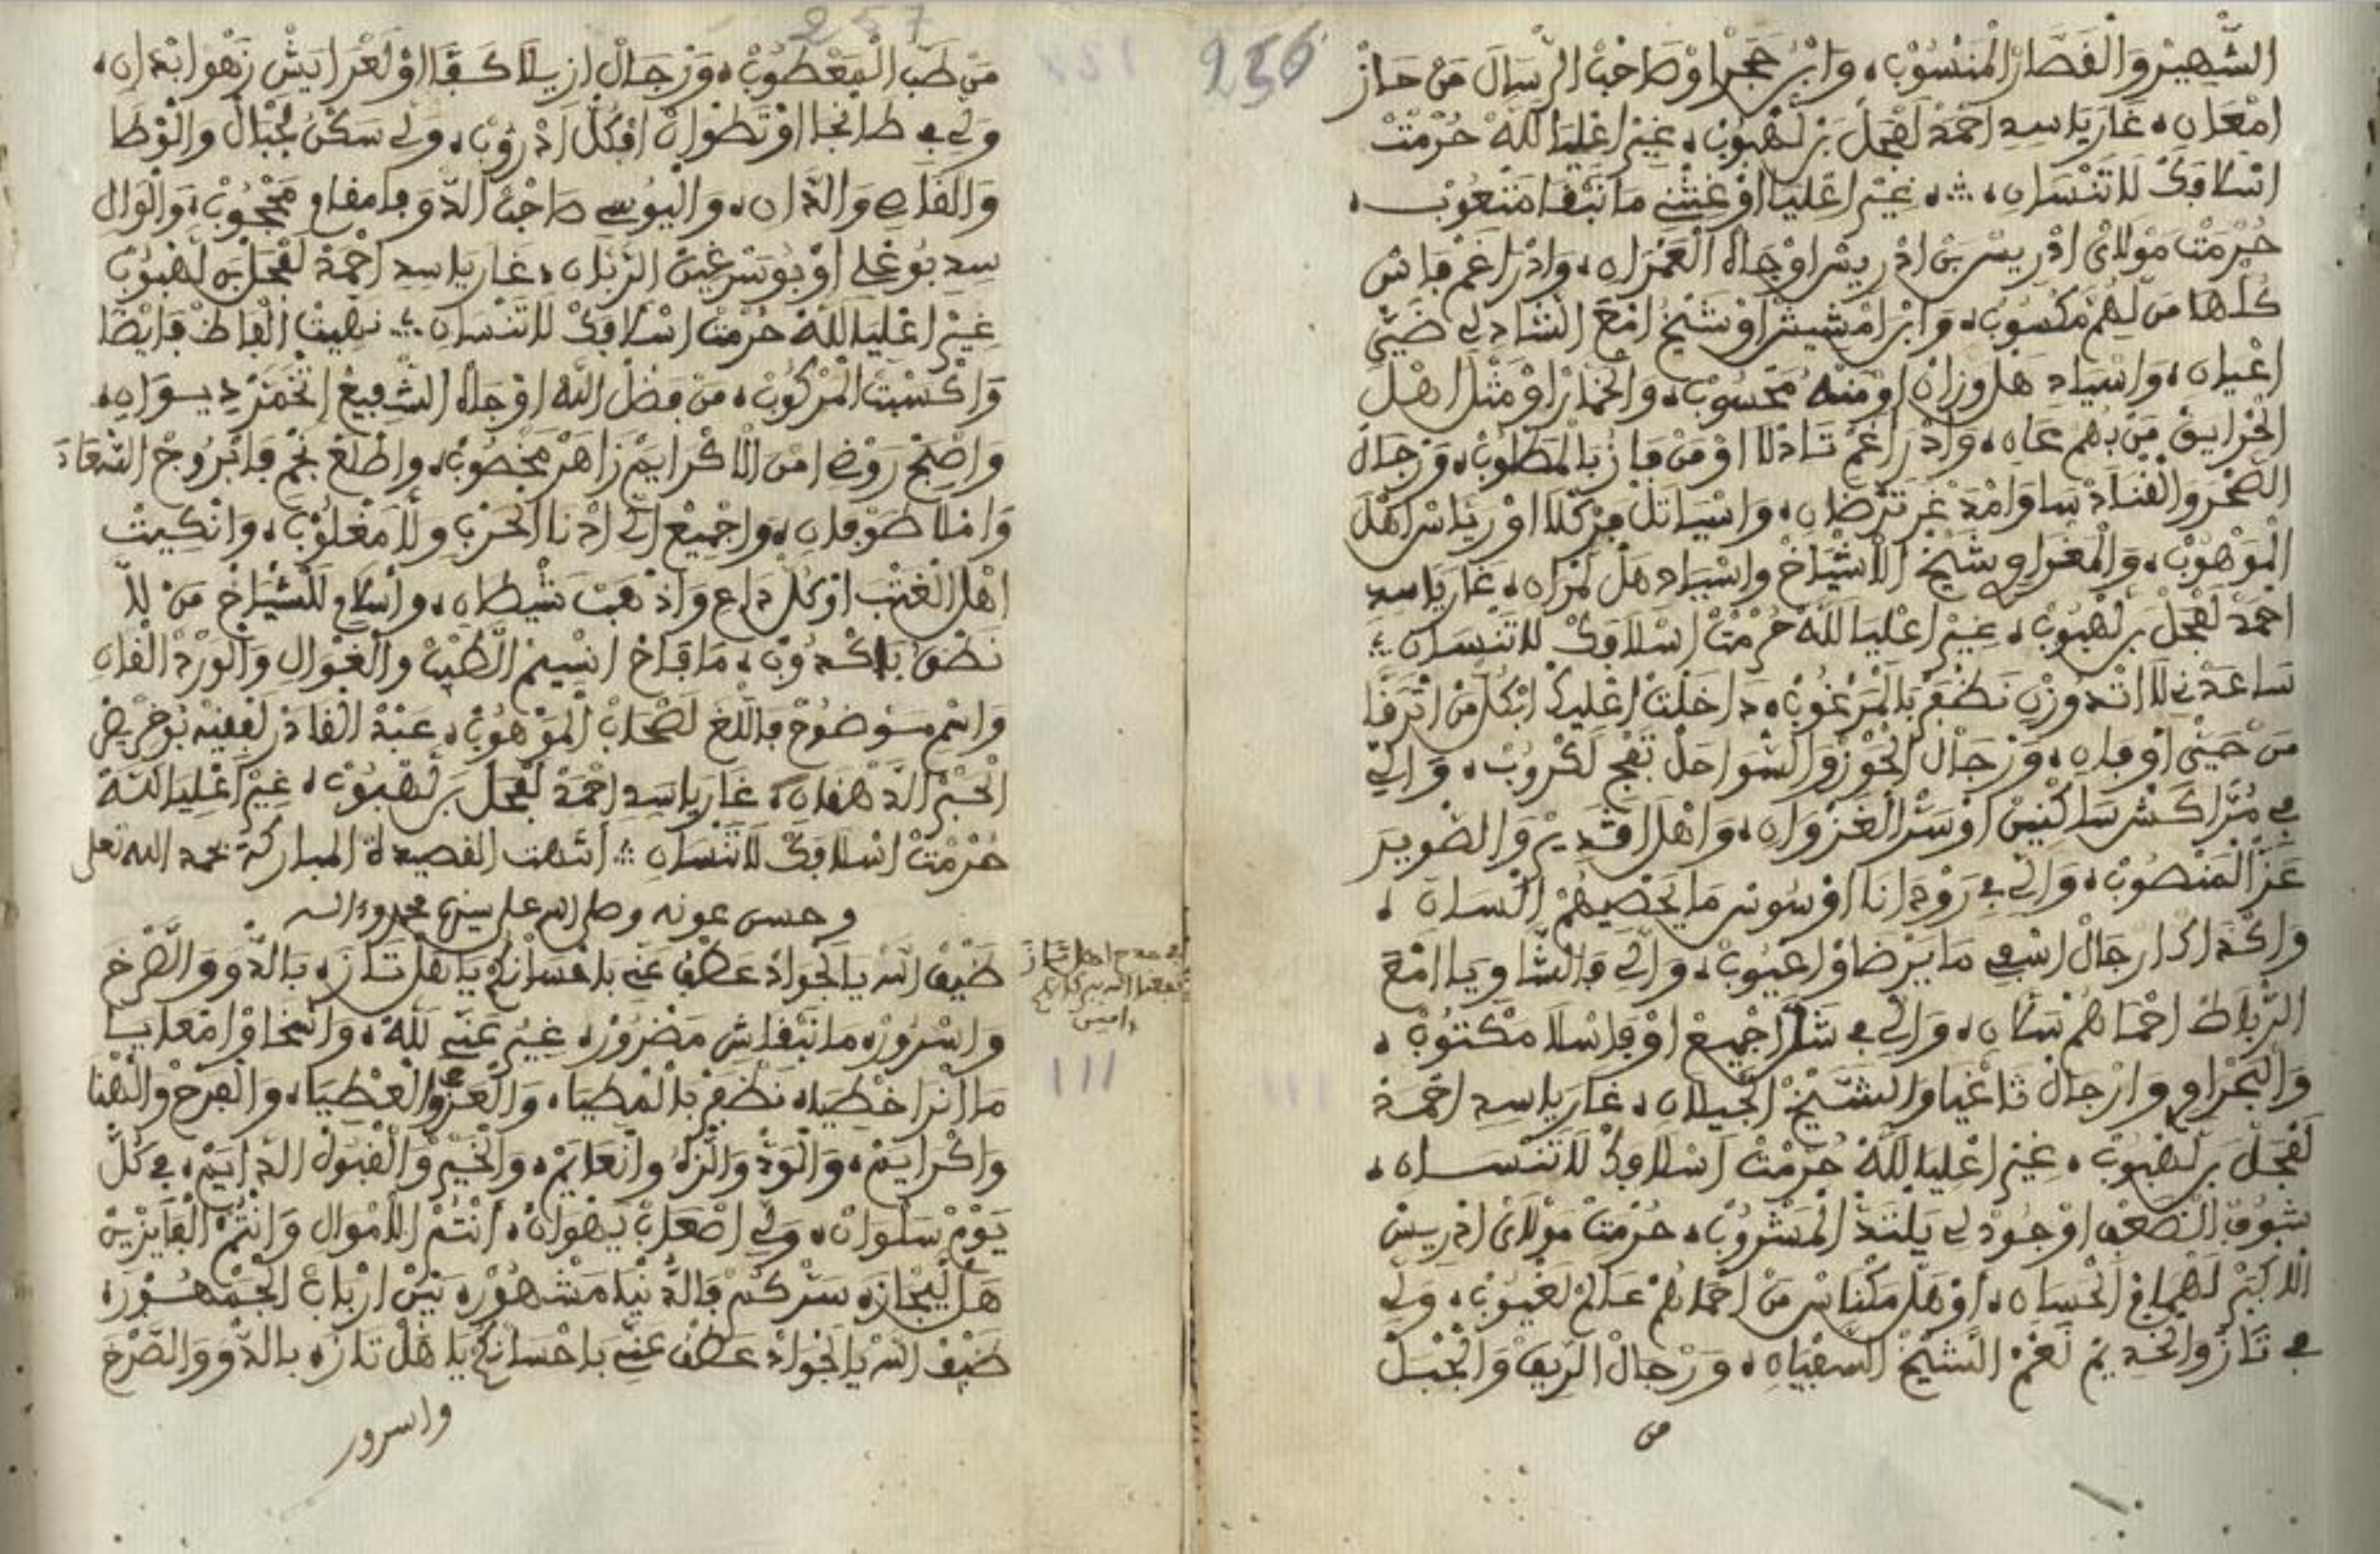 256
الشهير والقصار المنسوب، وابن حجر او صاحب الرسال من حاز
امعان، غار يا سيد احمد لفحل بن لهبوب، غير اعليا لله حرمت
اسلافك لا تنسان، غير اعليا او غثني ما نبقا متعوب،
حرمت مولاي ادريس بن ادريس او جاه العمران، وادراغم فاس
كلها من لهم مكسوب، وابن امشيش او شيخ امع الشادلي ضيي
اعيان، واسياد هل وزان او منه محسوب، والخمار او مثل اهل
الخرايق من بهم عان، وادراغم تادلا او من فاز بالمطلوب، ورجال
الصخر والقناد سا وامد غر ترضان، واسيا تل بزكلا او رياس اهل
الموهوب، والمغراوي شيخ الاشياخ واسياد هل لمران، غار يا سيد
احمد لفحل بن لهبوب، غير اعليا لله حرمت اسلافك لا تنسان
ساعدني لا اتدوزن نظفر بالمرغوب، داخلت اعليك ابكل من اترفا
من حيني او فان، ورجال الحوز والسواحل تفج لكروب، والي
في مراكش ساكنين او ستر الغزوان، واهل اقدير والصوير
عز المنصوب، والي في رودانا او سوس ما يحصيهم السان،
واكداك ارجال اسفي ما يرضاو اعيوب، والي فالشاويا امع
الرباط احماهم نسان، والي في شلا جميع او فاسلا مكتوب،
والبحراوي وارجال تاغيا والشيخ الجيلان، غار يا سيد احمد
لفحل بن لهبوب، غير اعليا لله حرمت اسلافك لا تنسان،
شوف الضعف او جود لي يلتد المشروب، حرمت مولاي ادريس
الاكبر لهمام الحسان، او هل مكناس من احماهم علام لغيوب، ولي
في تاز والخديم لعم الشيخ السفيان، ورجال الريف والجبل
من
257
من طب المعطوب، ورجال ازيلا كفا او لعرايش زهو ابدان،
ولي في طانجا او تطوان افكل ادروب، ولي سكن لجبال والوطا
والفلاي والدان، واليوسي صاحب الدوق امقام محجوب، والوال
سيد بوعلي او بوسرغين الربان، غار يا سيد احمد لفحل بن لهبوب
غير اعليا لله حرمت اسلافك لا تنسان نهيت الفاظ فايضا
واكسبت المركوب، من فضل الله او جاه الشفيع اتخمر ديوان،
واصبح روض امن الاكرايم زاهر مخصوب، واطلع نجم فابروج السعاد
وامن طوفان، واجميع الي ادنا الحرب ولا مغلوب، وانكيت
اهل الغتب او كل داع واذهبت شيطان، واسلام للشياخ من لا
نطق باكدوب، ما فاح انسيم الطيب والغوال والورد الفان
واسم سوضوح فاللغ لصحاب الموهوب، عبد القادر لفقيه بوخريص
الحبر الدهقان، غار يا سيد احمد لفحل بن لهبوب، غير اعليا لله
حرمت اسلافك لا تنسان انتهت القصيدة المباركة بحمد الله تعلى
وحسن عونه وصلى الله على سيدنا محمد وءاله
في مدح اهل تاز
نفعنا الله ببركاتهم
ءامين
ضيف الله يا لجواد عطف عني باحسانكم يا هل تازه بالدوو والصرخ
واسرور، ما نبقاش مضرور، غير عني لله، والسخا وامعاليا
ما انرا خطيا، نظفر بالمطيا، والعز والعطيا، والفرح والهنا
واكرايم، والود والزه وانعايم، والخير والقبول الدايم، في كل
يوم سلوان، ولي اصعاب يهوان، انتم الاموال وانتم الفايزين
هل ليجازه سركم فالدنيا مشهور، بين ارباب الجمهور،
ضيف الله يا لجواد عطف عني باحسانكم يا هل تازه بالدوو والصرخ
واسرور